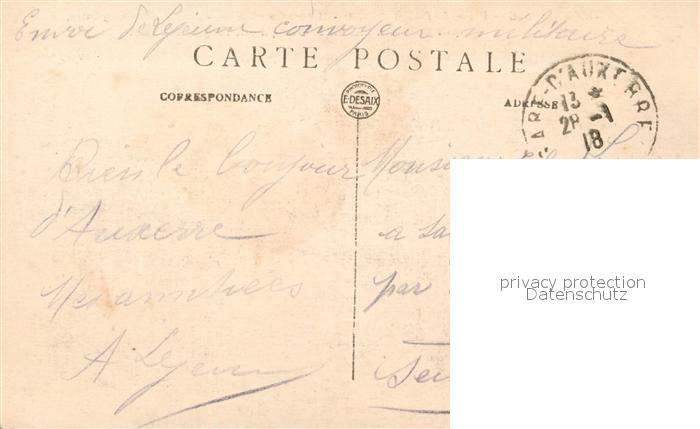 Envoi de Lejeune convoyeur militaire
CARTE POSTALE
CORRESPONDANCE
PHOTOTYPIE
E. DESAIX
PARIS
ADRESSE
GARE-D'AUXERRE
13 *
28 -1
18
Bien le bonjour
d'Auxerre
Mes amitiées
A Lejeune
Monsieur
a
par
privacy protection
Datenschutz